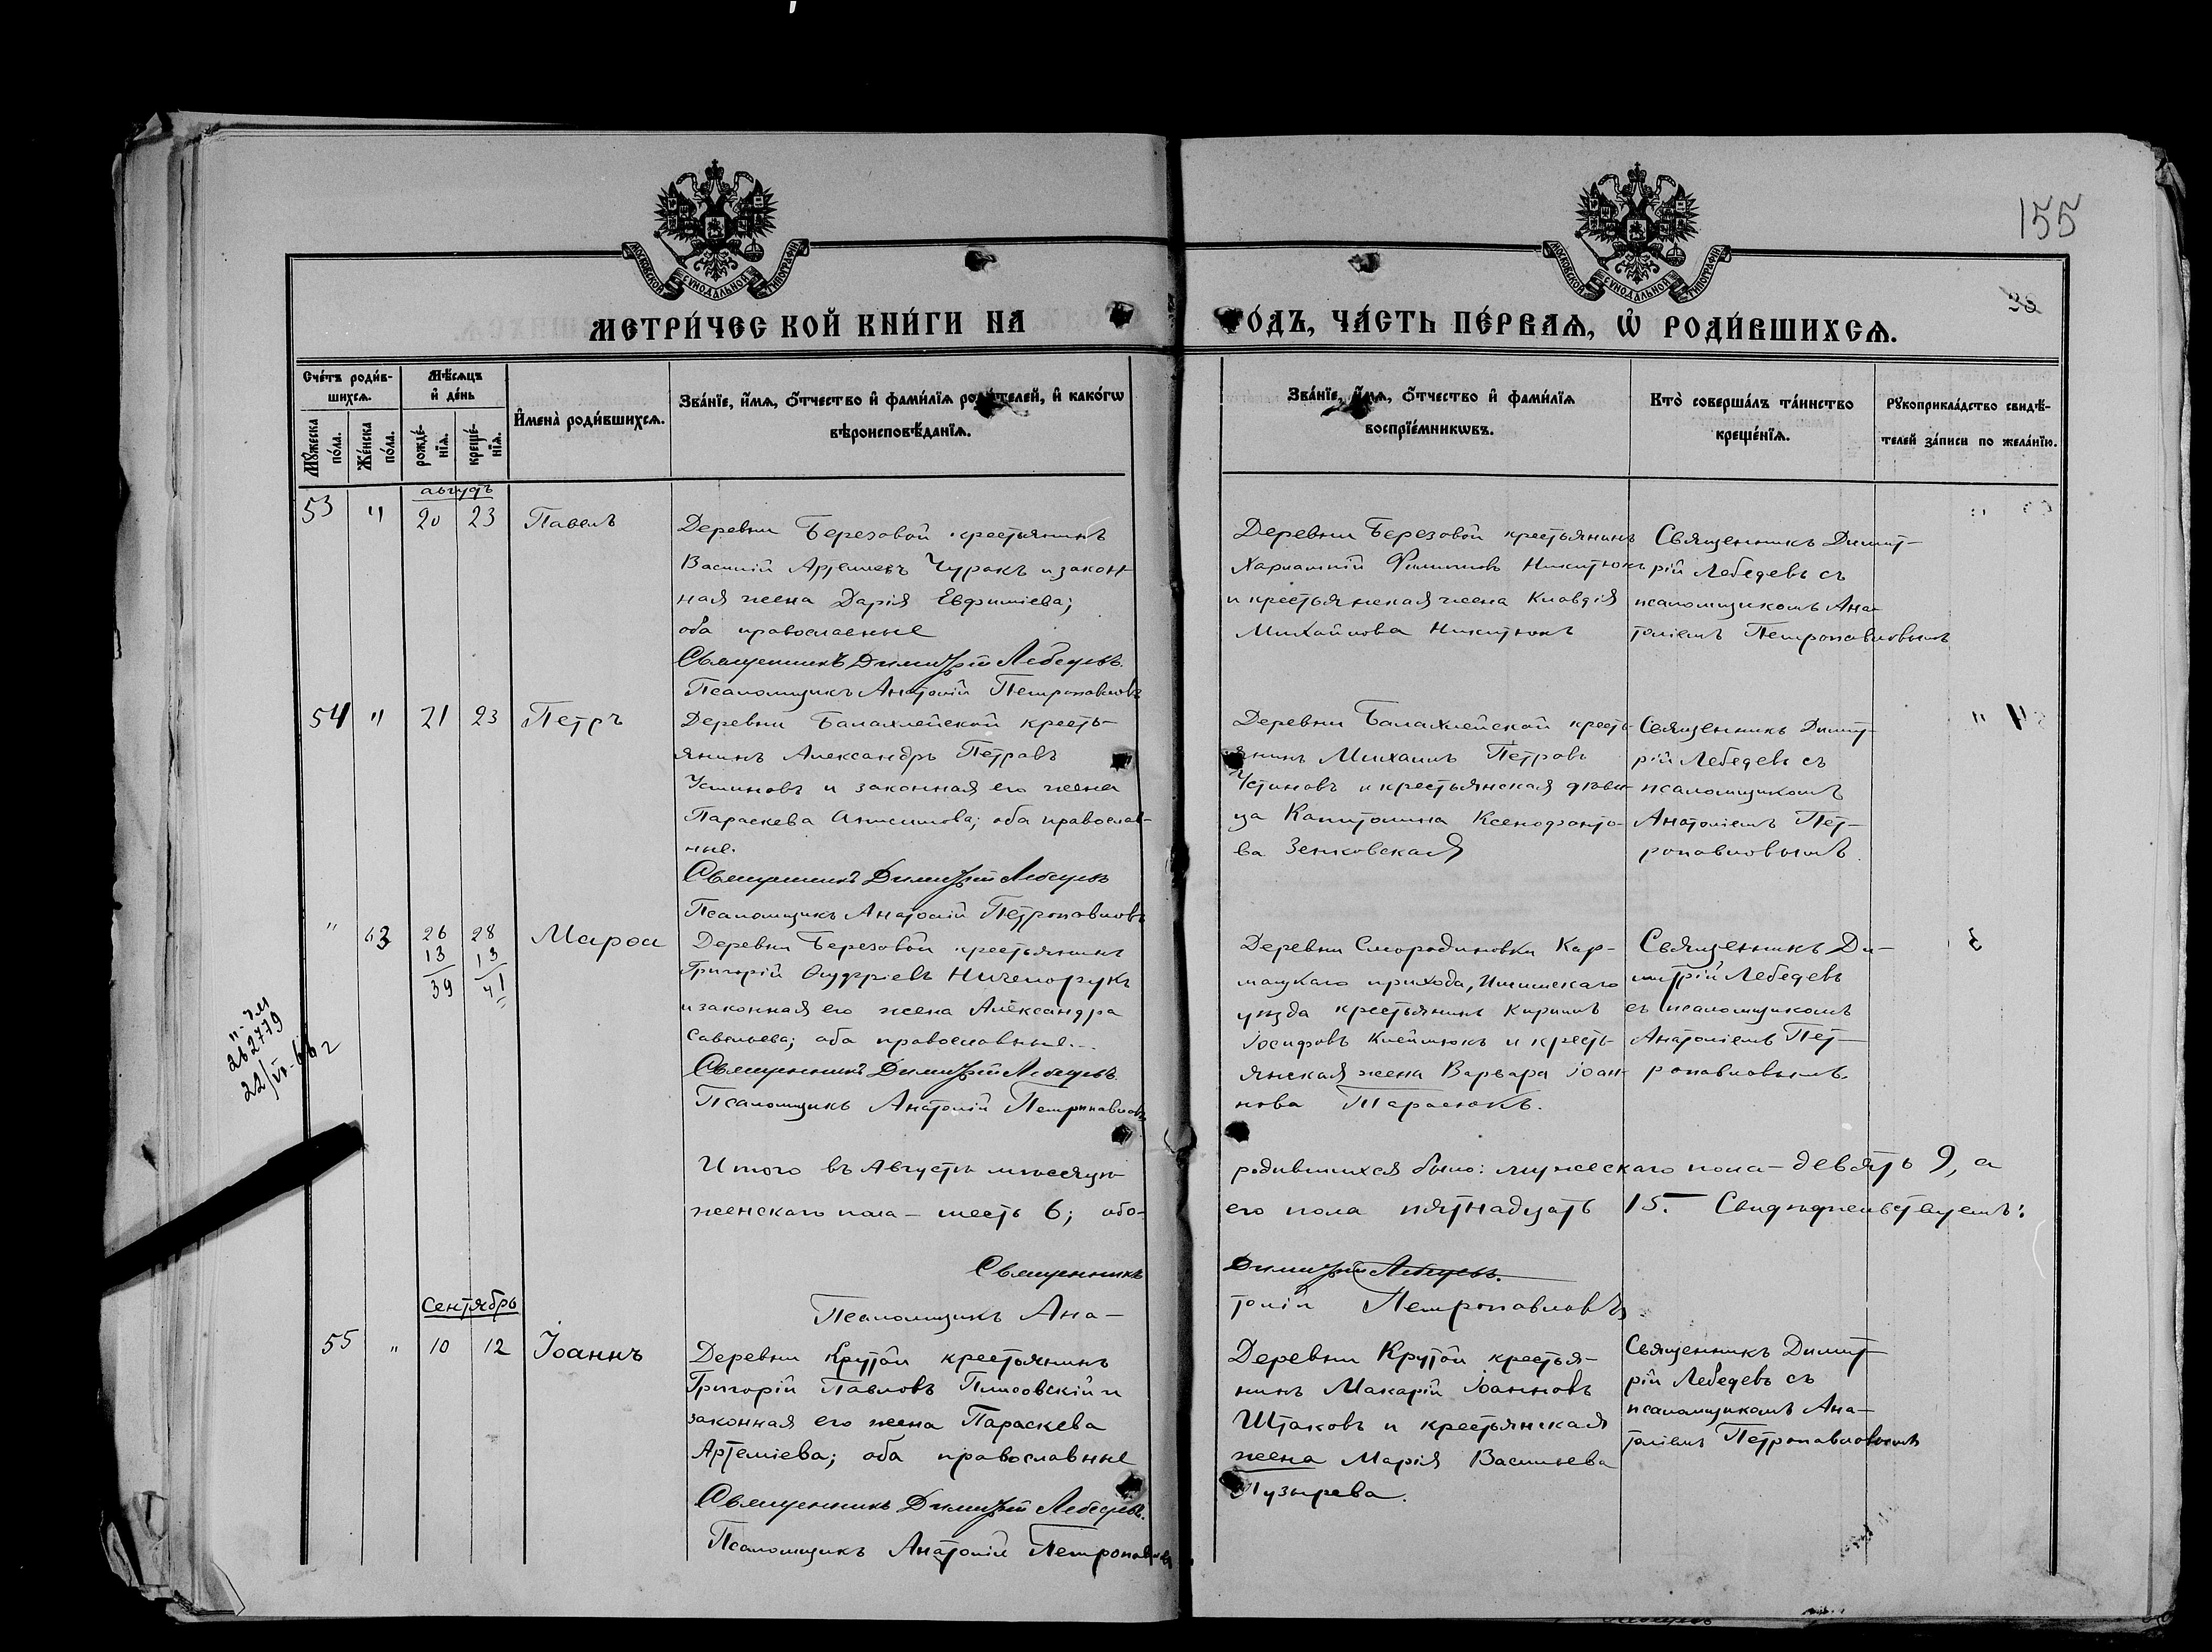 155
28
МОСКОВСКОЙ СѴНОДАЛЬНОЙ ТИПОГРАФІИ
МОСКОВСКОЙ СѴНОДАЛЬНОЙ ТИПОГРАФІИ
МЕТРИ́ЧЕСКОЙ КНИ́ГИ НА
ГО́ДЪ, ЧА́СТЬ ПЕ́РВАѦ, Ѡ҆ РОДИ́ВШИХСѦ.
Сче́тъ роди́в-
шихсѧ.
Мꙋ́жеска по́ла.
Же́нска по́ла.
Мѣ́сѧцъ
и҆ де́нь
рожде́-нїѧ.
креще́-нїѧ.
И҆мена̀ роди́вшихсѧ.
Зва́нїе, и҆́мѧ, ѻ҆́тчество и҆ фами́лїѧ роди́телей, и҆ како́гѡ
вѣроисповѣ́данїѧ.
Зва́нїе, и҆́мѧ, ѻ҆́тчество и҆ фами́лїѧ
воспрїе́мникѡвъ.
Кто̀ соверша́лъ та́инство
креще́нїѧ.
Рꙋкоприкла́дство свидѣ́-
телей за́писи по жела́нїю.
53 " 20 23 Павелъ
Деревни Березовой крестьянинъ
Василій Чуракъ и закон-
ная жена Дарія Евфиміева;
оба православные
Священникъ Димитрій Лебедевъ.
Псаломщикъ Анатолій Петропавловъ
Деревни Березовой крестьянинъ
Филипповъ Никитюкъ
и крестьянская жена Клавдія
Михайлова Никитюкъ
Священникъ Димит-
рій Лебедевъ съ
псаломщикомъ Ана-
толіемъ Петропавловымъ
54 " 21 23 Петръ
Деревни Балахлейской кресть-
янинъ Александръ Петровъ
Устиновъ и законная его жена
Параскева Анисимова; оба православ-
ные.
Священникъ Димитрій Лебедевъ
Псаломщикъ Анатолій Петропавловъ
Деревни Балахлейской кресть-
янинъ Михаилъ Петровъ
Устиновъ и крестьянская дѣви-
ца Капитолина Ксенофонто-
ва Зенковская
Священникъ Димит-
рій Лебедевъ съ
псаломщикомъ
Анатоліемъ Пет-
ропавловымъ.
" 43 26 28
13 13
39 41
Марѳа
Деревни Березовой крестьянинъ
Григорій Ничепорукъ
и законная его жена Александра
Савельева; оба православные.
Священникъ Димитрій Лебедевъ.
Псаломщикъ Анатолій Петропавловъ
Деревни Смородиновки Кар-
прихода, Ишимскаго
уѣзда крестьянинъ Кириллъ
Іосифовъ и кресть-
янская жена Варвара Іоан-
нова Тарасюкъ.
Священникъ Ди-
митрій Лебедевъ
съ псаломщикомъ
Анатоліемъ Пет-
ропавловымъ.
Итого въ Августѣ мѣсяцѣ
родившихся было: мужескаго пола – девять 9, а
женскаго пола – шесть 6; обо-
его пола пятнадцать 15. Свидѣтельствуемъ:
Священникъ
Димитрій Лебедевъ.
Псаломщикъ Ана-
толій Петропавловъ
Сентябрь
55 " 10 12 Іоаннъ
Деревни Крутой крестьянинъ
Григорій Павловъ и
законная его жена Параскева
Артеміева; оба православные
Священникъ Димитрій Лебедевъ.
Псаломщикъ Анатолій Петропавловъ
Деревни Крутой крестья-
нинъ Макарій Іоанновъ
Штаковъ и крестьянская
жена Марія Васильева
Пузырева.
Священникъ Димит-
рій Лебедевъ съ
псаломщикомъ Ана-
толіемъ Петропавловымъ